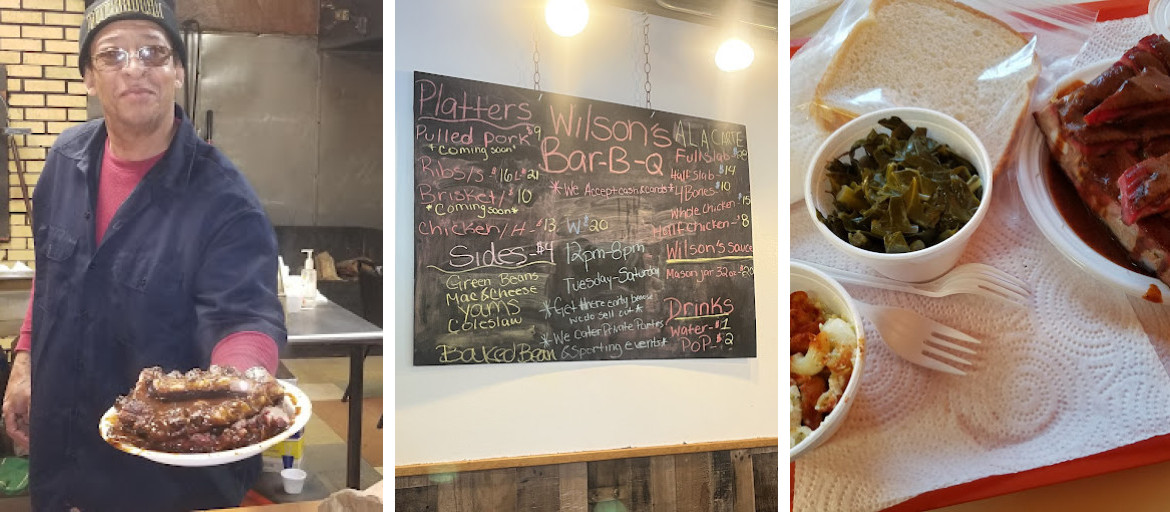 Platters
Pulled Pork $9
*Coming soon*
Ribs/s $16 L-$21
Brisket/ $10
*Coming soon*
Chicken/H-$13 W-$20
Sides-$4
Green Beans
Mac & Cheese
Yams
Coleslaw
Baked Bean
Wilson's
Bar-B-Q
*We Accept cash & cards*
12pm-8pm
Tuesday-Saturday
*Get there early because
we do sell out*
*We Cater Private Parties
& Sporting events*
A LA CARTE
Full Slab-
Half Slab-$14
4 Bones-$10
Whole Chicken $15
Half Chicken-$8
Wilson's Sauce
Mason jar 32oz-$20
Drinks
Water-$1
POP-$2